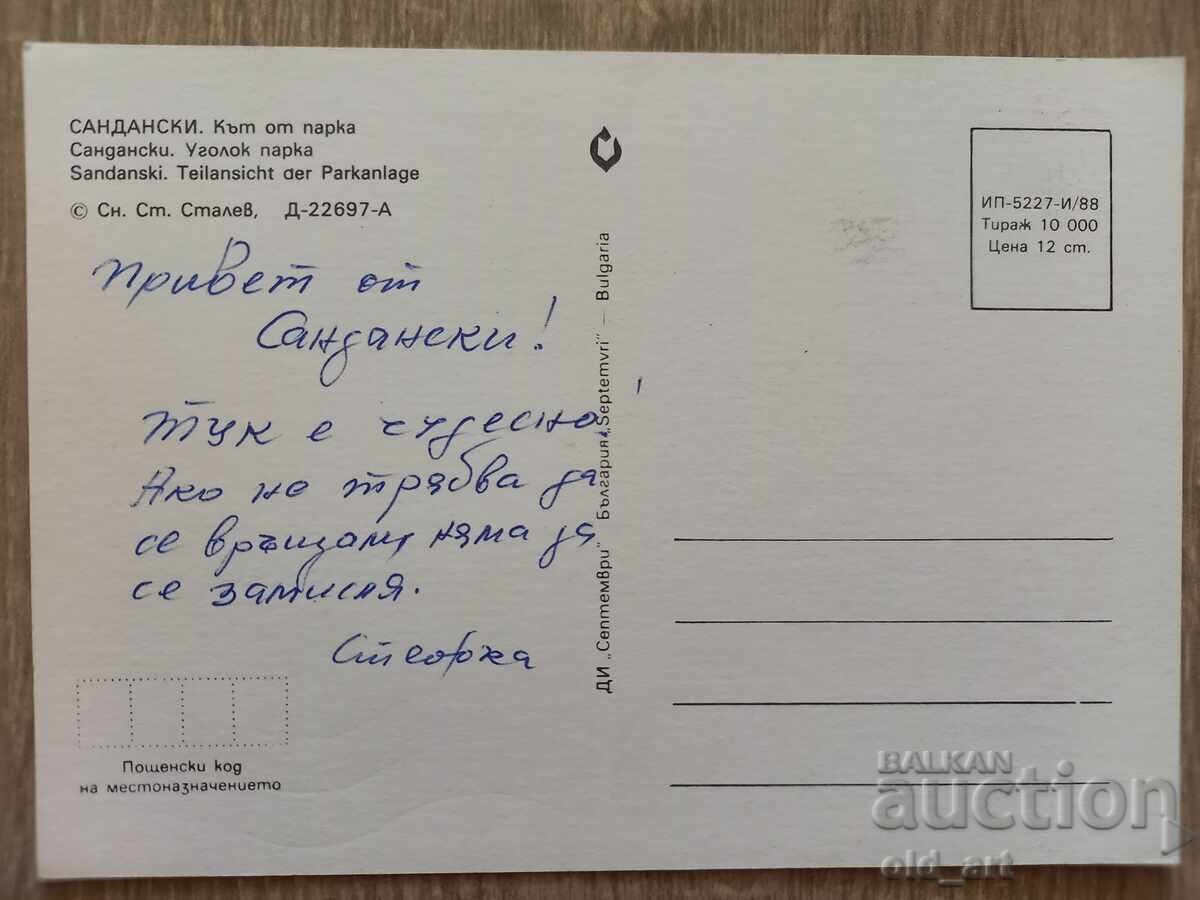 САНДАНСКИ. Кът от парка
Сандански. Уголок парка
Sandanski. Teilansicht der Parkanlage
© Сн. Ст. Сталев, Д-22697-А
Привет от
Сандански!
Тук е чудесно.
Ако не трябва да
се връщам, няма да
се запися.
ДИ „Септември" България „Septemvri" — Bulgaria
ИП-5227-И/88
Тираж 10 000
Цена 12 ст.
Пощенски код
на местоназначението
BALKAN
auction
old_art